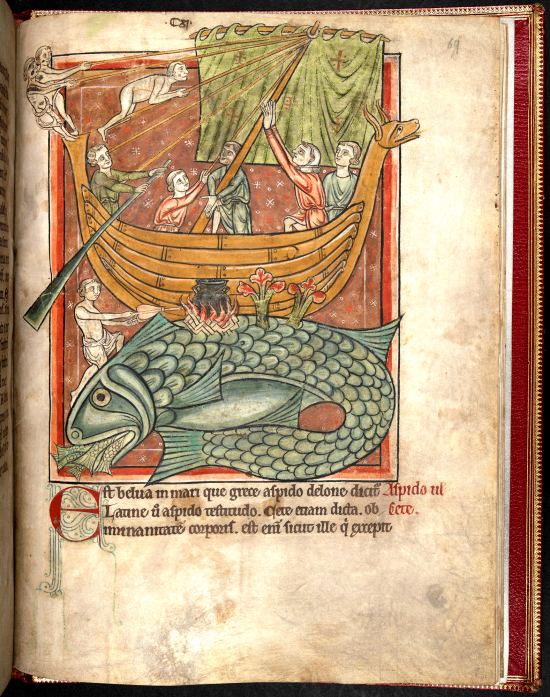 69
Est belua in mari que grece aspido delone dicit᷑ Aspido ul
Latine ū aspido testitudo. Cete etiam dicta. ob cete.
inmanitatē corporis. est eni᷑ sicut ille q̇ excepit